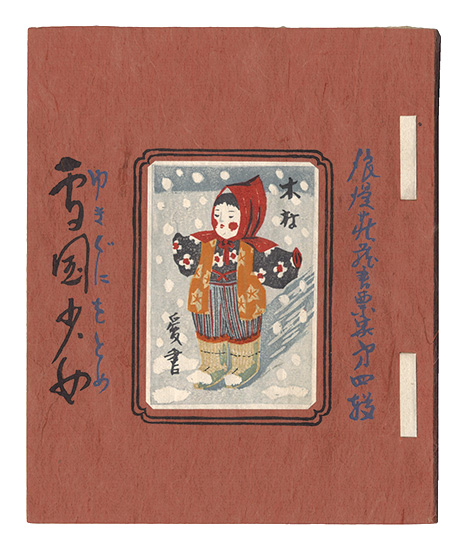 浪漫荘蔵書票集第四輯
木村
愛書
ゆきぐにをとめ
雪国少女